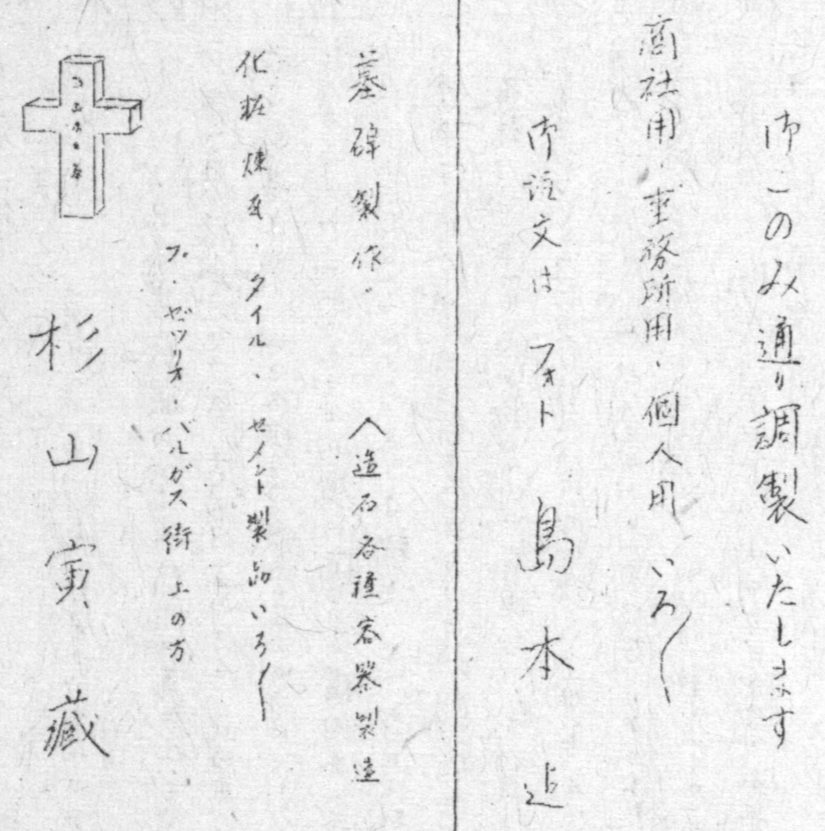 御このみ通り調製いたします
商社用、事務所用、個人用いろ〱
御註文は フォト 島本
墓碑製作、 人造石各種容器製造
化粧煉瓦、タイル、セメント製品いろ〱
プ・ゼツリオ・バルガス街上の方
杉山寅蔵